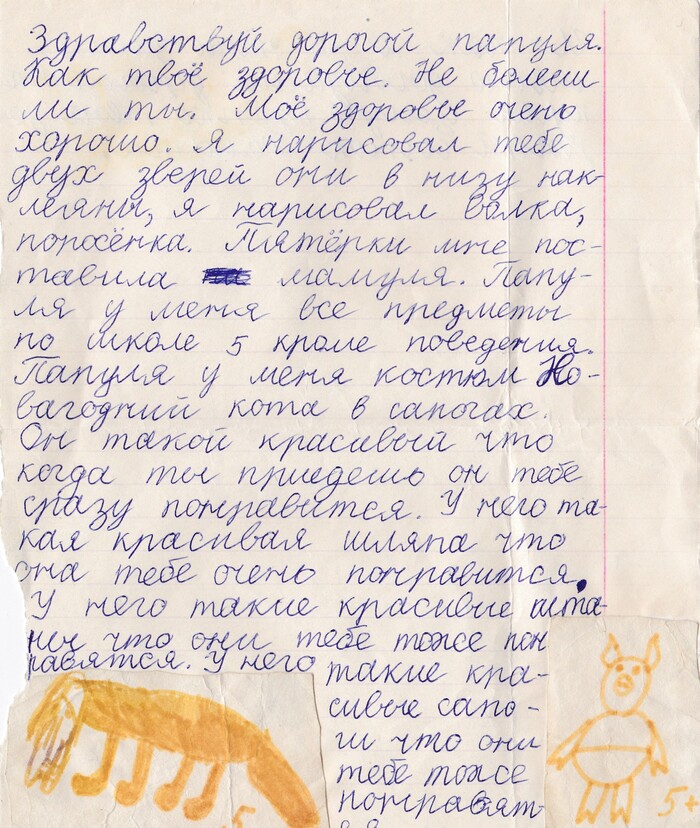 Здравствуй дорогой папуля.
Как твоё здоровье. Не болеш
ли ты. Моё здоровье очень
хорошо. Я нарисовал тебе
двух зверей они в низу нак-
леяны, я нарисовал волка,
поросёнка. Пятёрки мне пос-
тавила мамуля. Папу-
ля у меня все предметы
по школе 5 кроме поведения.
Папуля у меня костюм Но-
вагодний кота в сапогах.
Он такой красивый что
когда ты приедешь он тебе
сразу понравится. У него та-
кая красивая шляпа что
она тебе очень понравится.
У него такие красивые шта-
ны что они тебе тоже пон
равятся. У него такие кра-
сивые сапо-
ги что они
тебе тоже
понравят
5
5+